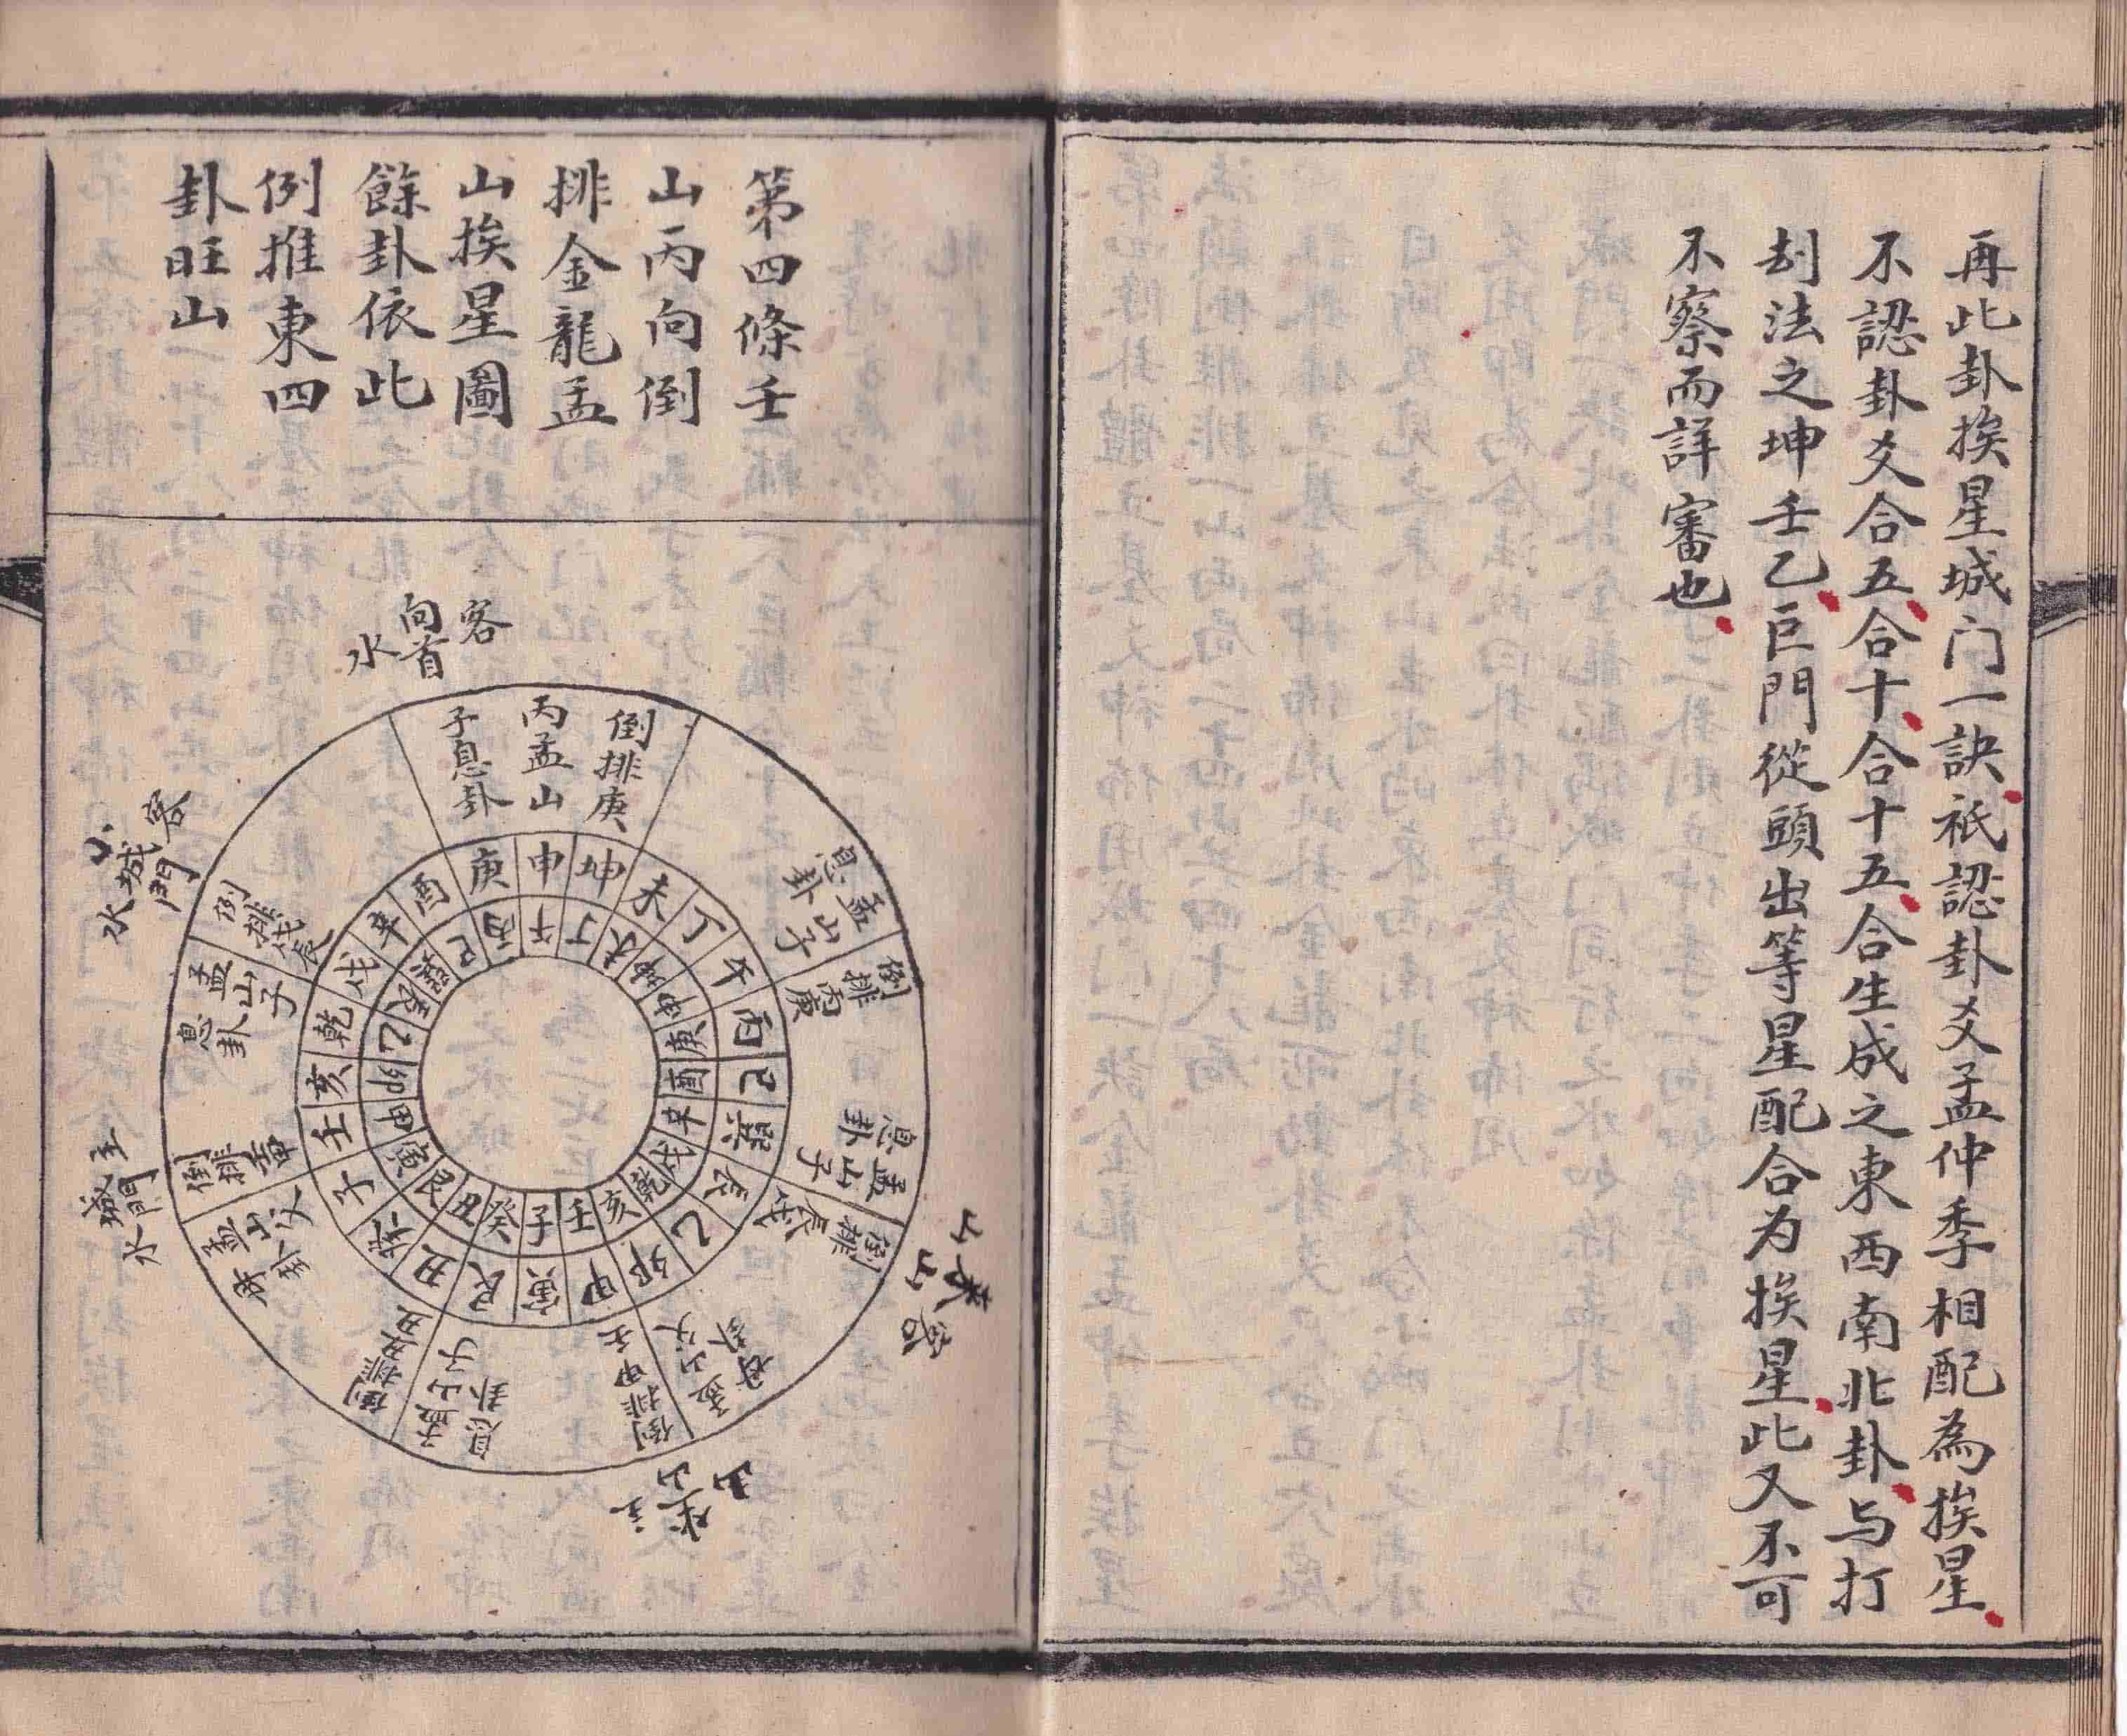 再此卦挨星城门一訣祇認卦爻孟仲季相配為挨星
不認卦爻合五合十合十五合生成之東西南北卦与打
刦法之坤壬乙巨門從頭出等星配合为挨星此又不可
不察而詳審也
第四條壬
山丙向倒
排金龍孟
山挨星圖
餘卦依此
例推東四
卦旺山
客
向首
水
倒排庚
丙孟山
子息卦
孟山子
息卦
倒排
丙庚
孟山子
息卦
倒排
辰戌
客
來山
山
孟山父
母卦
倒排甲壬
山
坐山
主
孟山子
息卦
倒排
孟山父
母卦
倒排
主
城門
水
孟山子
息卦
倒排戌辰
客
小城門
水
申坤未丁午丙巳巽辰乙卯甲寅艮丑癸子壬亥乾戌辛酉庚
午丁未坤申庚酉辛戌乾亥壬子癸丑艮寅甲卯乙辰巽巳丙